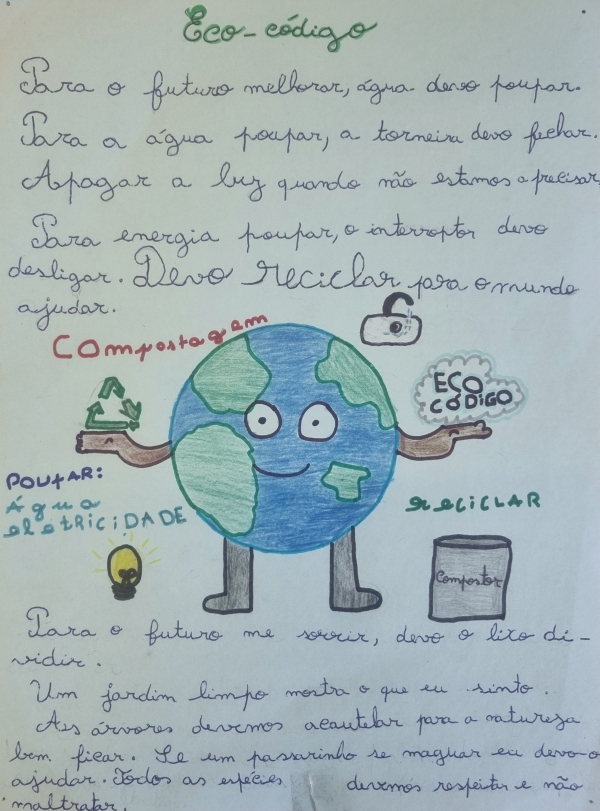 Eco-código
Para o futuro melhorar, água devo poupar.
Para a água poupar, a torneira devo fechar.
Apagar a luz quando não estamos a precisar,
Para energia poupar, o interroptor devo
desligar. Devo reciclar para o mundo
ajudar.
Compostagem
ECO
CÓDIGO
POUPAR:
Água
eletRICIDADE
reciclAR
Compostor
Para o futuro me sorrir, devo o lixo di-
vidir.
Um jardim limpo mostra o que eu sinto.
As árvores devemos acautelar para a natureza
bem ficar. Se um passarinho se maguar eu devo-o
ajudar. Todos as espécies devemos respeitar e não
maltratar.